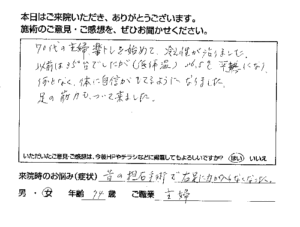 本日はご来院いただき、ありがとうございます。
施術のご意見・ご感想を、ぜひお聞かせください。
70代の主婦 筋トレを始めて、冷え性が治りました。
以前は35°台でしたが(低体温) 36.5℃ 平熱になり
何となく、体に自信がもてるようになりました。
足の筋力もついて来ました。
いただいたご意見・ご感想は、今後HPやチラシなどに掲載してもよろしいですか? はい いいえ
来院時のお悩み(症状) 昔の 手術で 右足に力が入らなくなった。
男・女 年齢 74 歳 ご職業 主婦